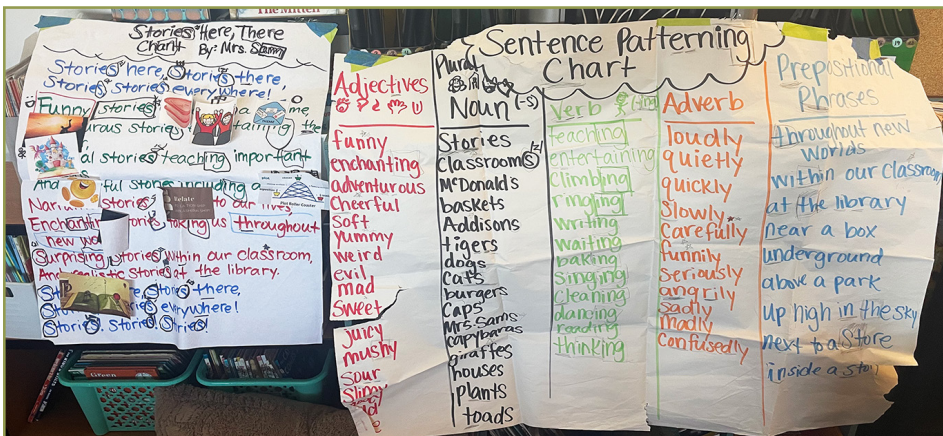 The Mitten
Stories Here, There
Chant By: Mrs.
Stories here, Stories there,
Stories stories everywhere!
Funny stories
stories
the
stories teaching important
And stories including a
to our lives,
Enchanting taking us throughout
new
Surprising stories within our classroom,
And stories at the library.
here, Stories there,
Stories everywhere!
Stories. Stories. Stories!
Relate
Plot Roller Coaster
Green
Sentence Patterning
Chart
Adjectives
funny
enchanting
adventurous
Cheerful
Soft
yummy
weird
evil
mad
Sweet
juicy
mushy
Sour
Slimy
Plural
Noun (-s)
Stories
Classrooms
McDonald's
baskets
Addisons
tigers
dogs
Cats
burgers
Caps
Mrs. Sams
capybaras
giraffes
houses
plants
toads
Verb (-ing)
teaching
entertaining
Climbing
ringling
writing
waiting
baking
singing
Cleaning
dancing
reading
thinking
Adverb
loudly
quietly
quickly
Slowly
Carefully
funnily
Seriously
angrily
Sadly
madly
Confusedly
Prepositional
Phrases
throughout new
worlds
within our classroom
at the library
near a box
underground
above a park
up high in the sky
next to a Store
inside a